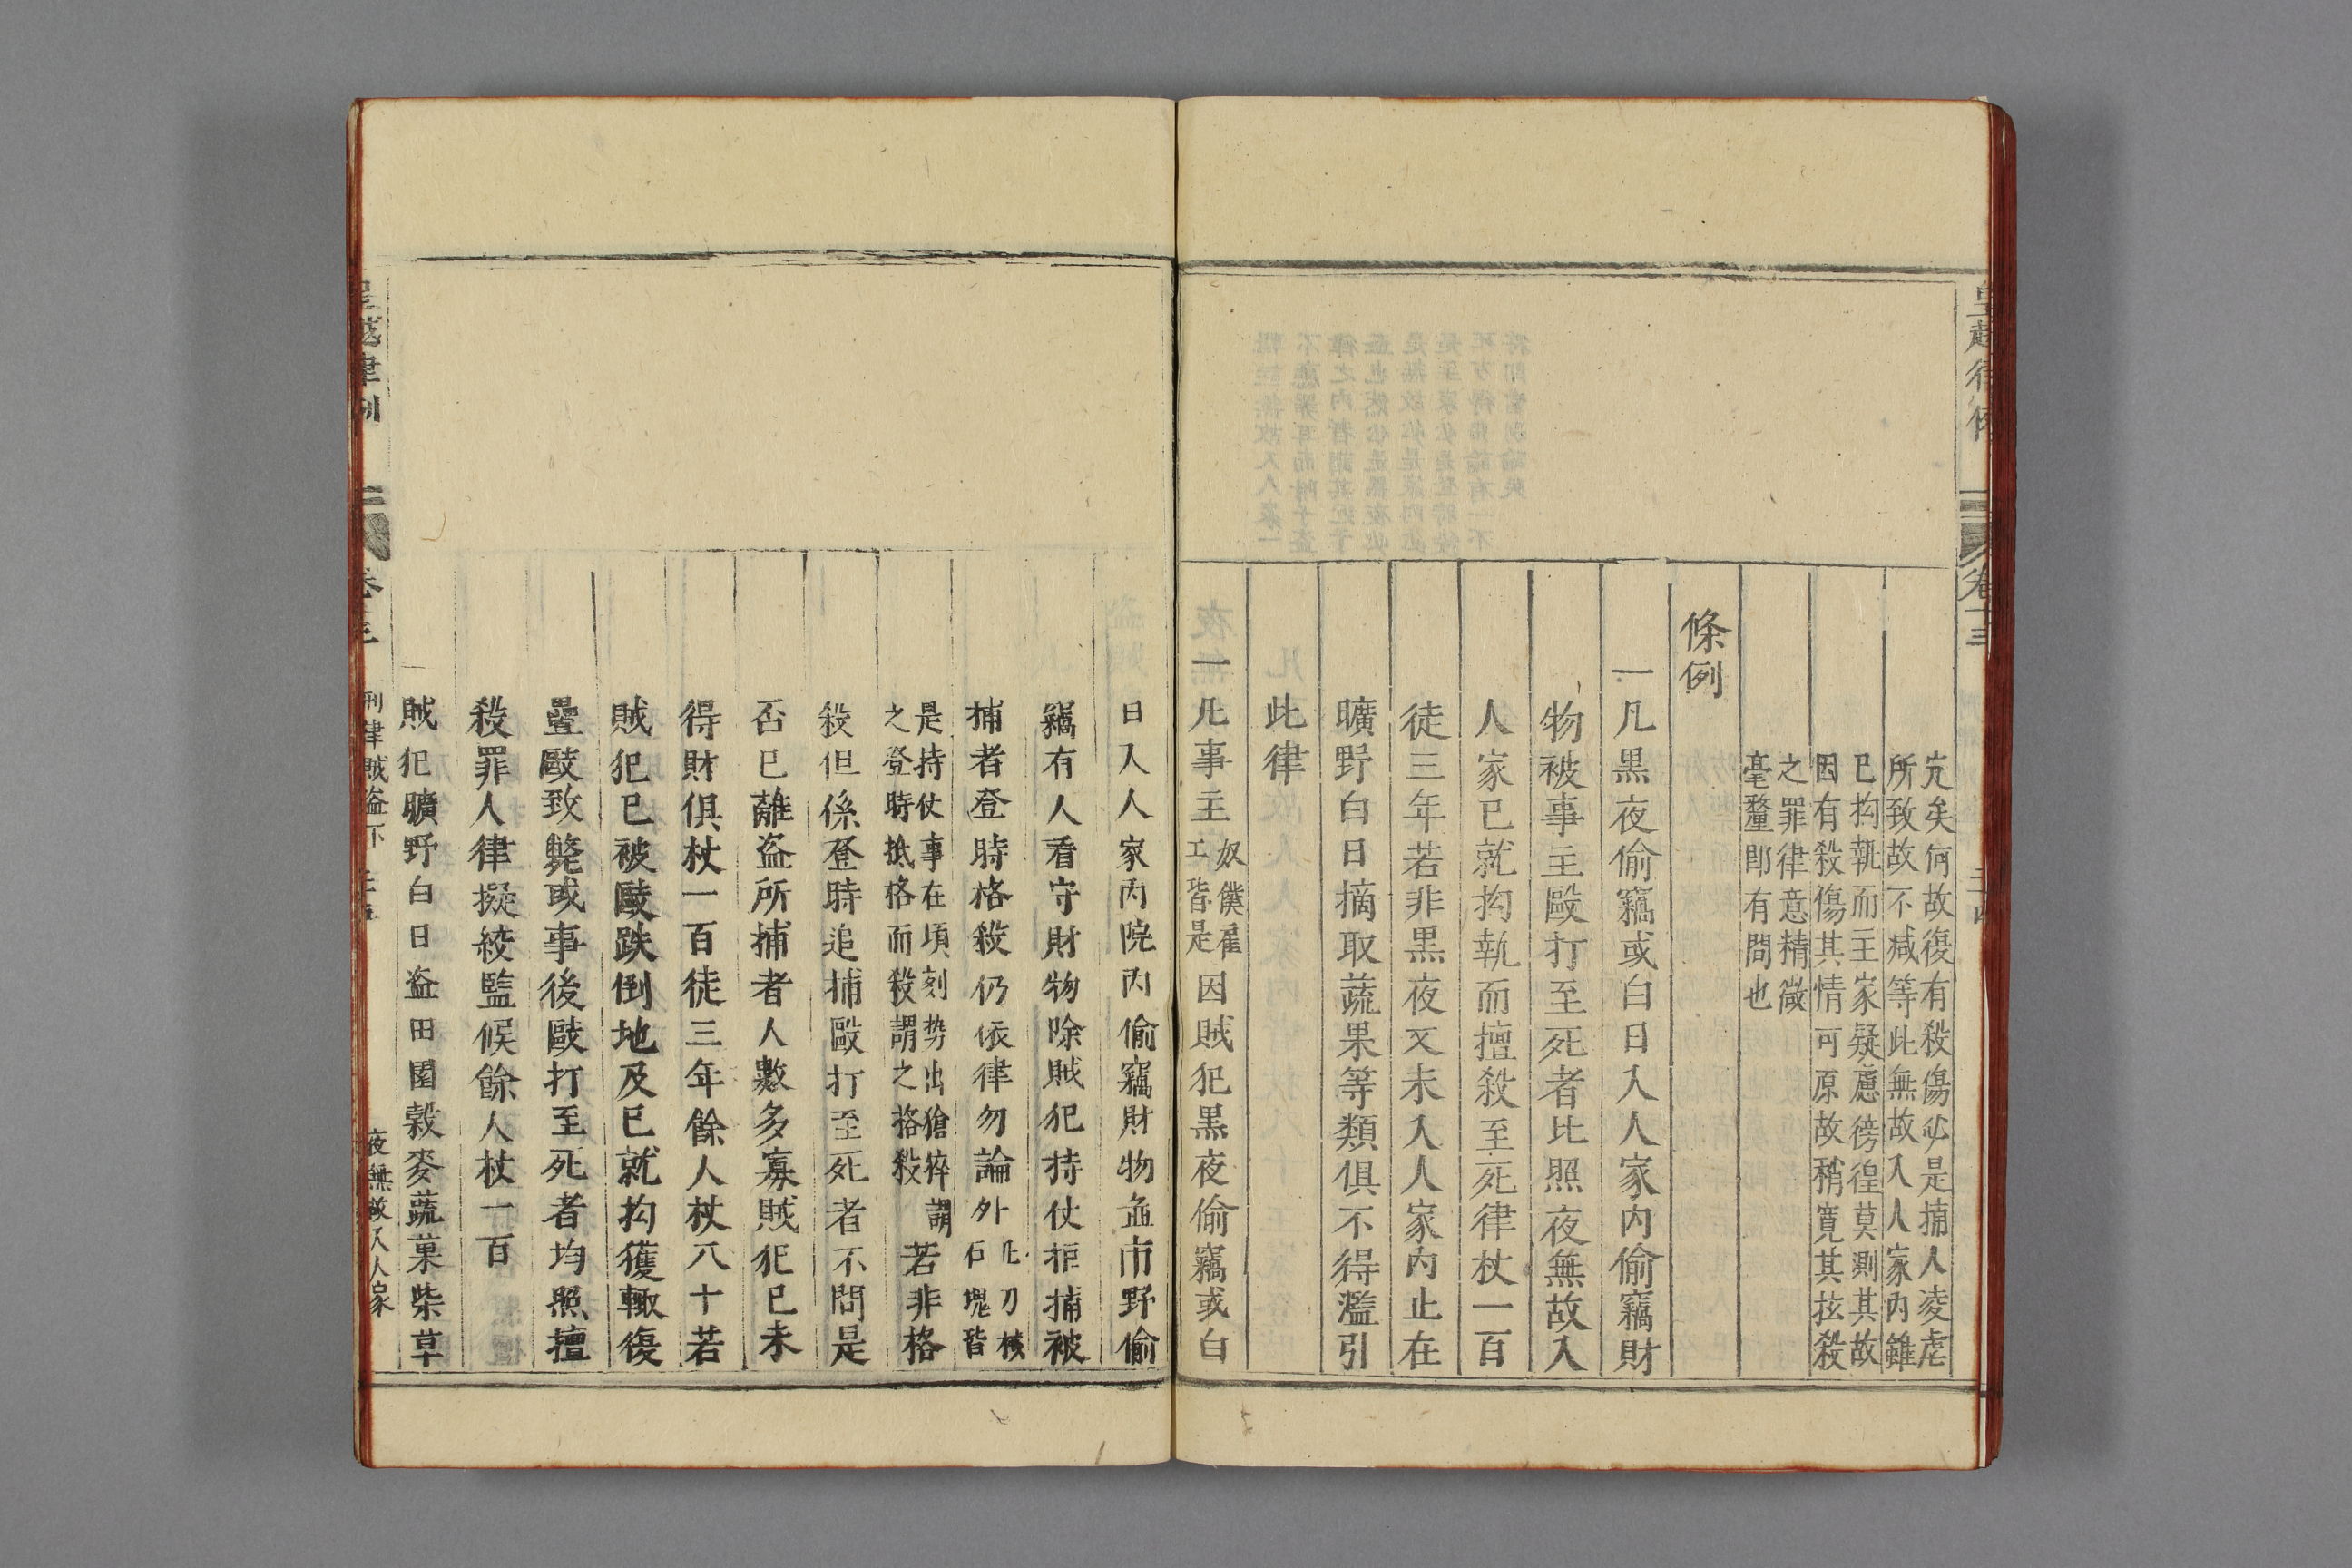 皇越律例
卷十三
究矣何故復有殺傷必是捕人凌虐
所致故不减等此無故入人家內雖
已拘執而主家疑慮徬徨莫測其故
因有殺傷其情可原故稍寬其抵殺
之罪律意精微
毫釐郎有間也
條例
一凡黑夜偷竊或白日入人家內偷竊財
物被事主毆打至死者比照夜無故入
人家已就拘執而擅殺至死律杖一百
徒三年若非黑夜又未入人家內止在
曠野白日摘取蔬果等類俱不得濫引
此律
一凡事主
奴僕雇
工皆是
因賊犯黑夜偷竊或白
日入人家內院內偷竊財物並市野偷
竊有人看守財物除賊犯持仗拒捕被
捕者登時格殺仍依律勿論外
凡刀械
石塊皆
是持仗事在頃刻势出獊猝謂
之登時抵格而殺謂之格殺
若非格
殺但係登時追捕毆打至死者不問是
否已離盗所捕者人數多寡賊犯已未
得財俱杖一百徒三年餘人杖八十若
賊犯已被毆跌倒地及已就拘獲輙復
疊毆致斃或事後毆打至死者均照擅
殺罪人律擬絞監候餘人杖一百
一賊犯曠野白日盗田園榖麥蔬菓柴草
皇越律例
卷
刑律賊盗下
夜無故入人家